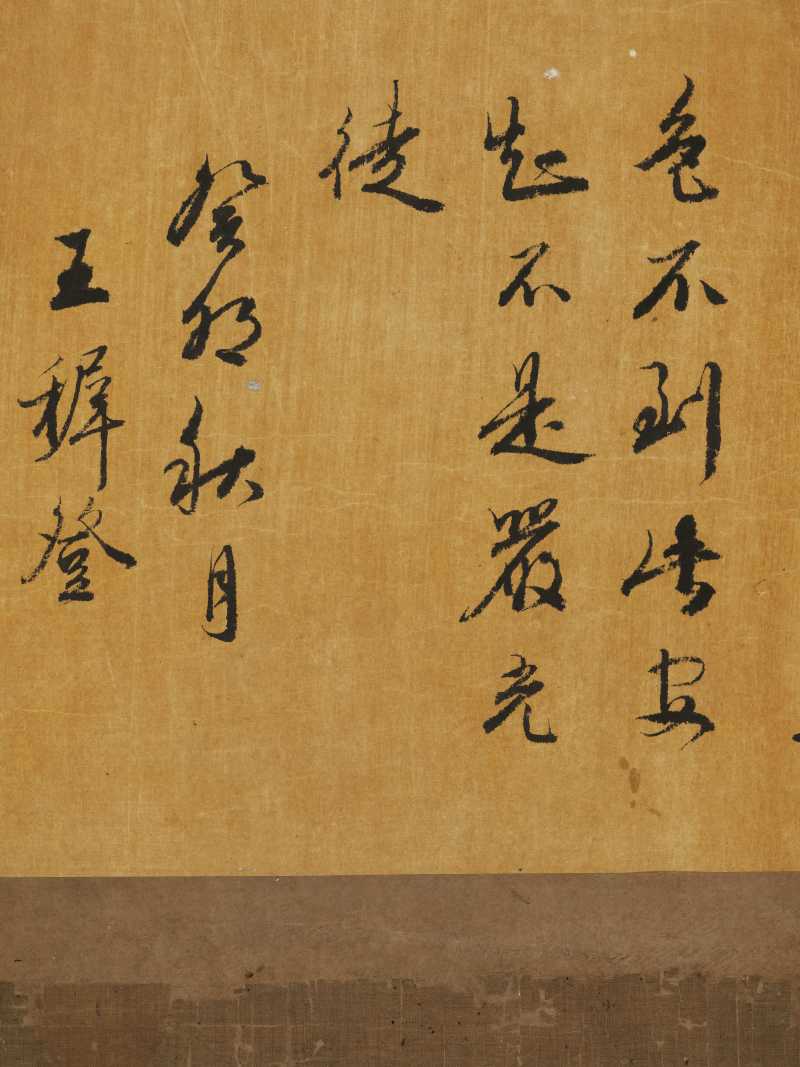 色不到此安
知不是嚴光
徒
癸卯秋月
王穉登